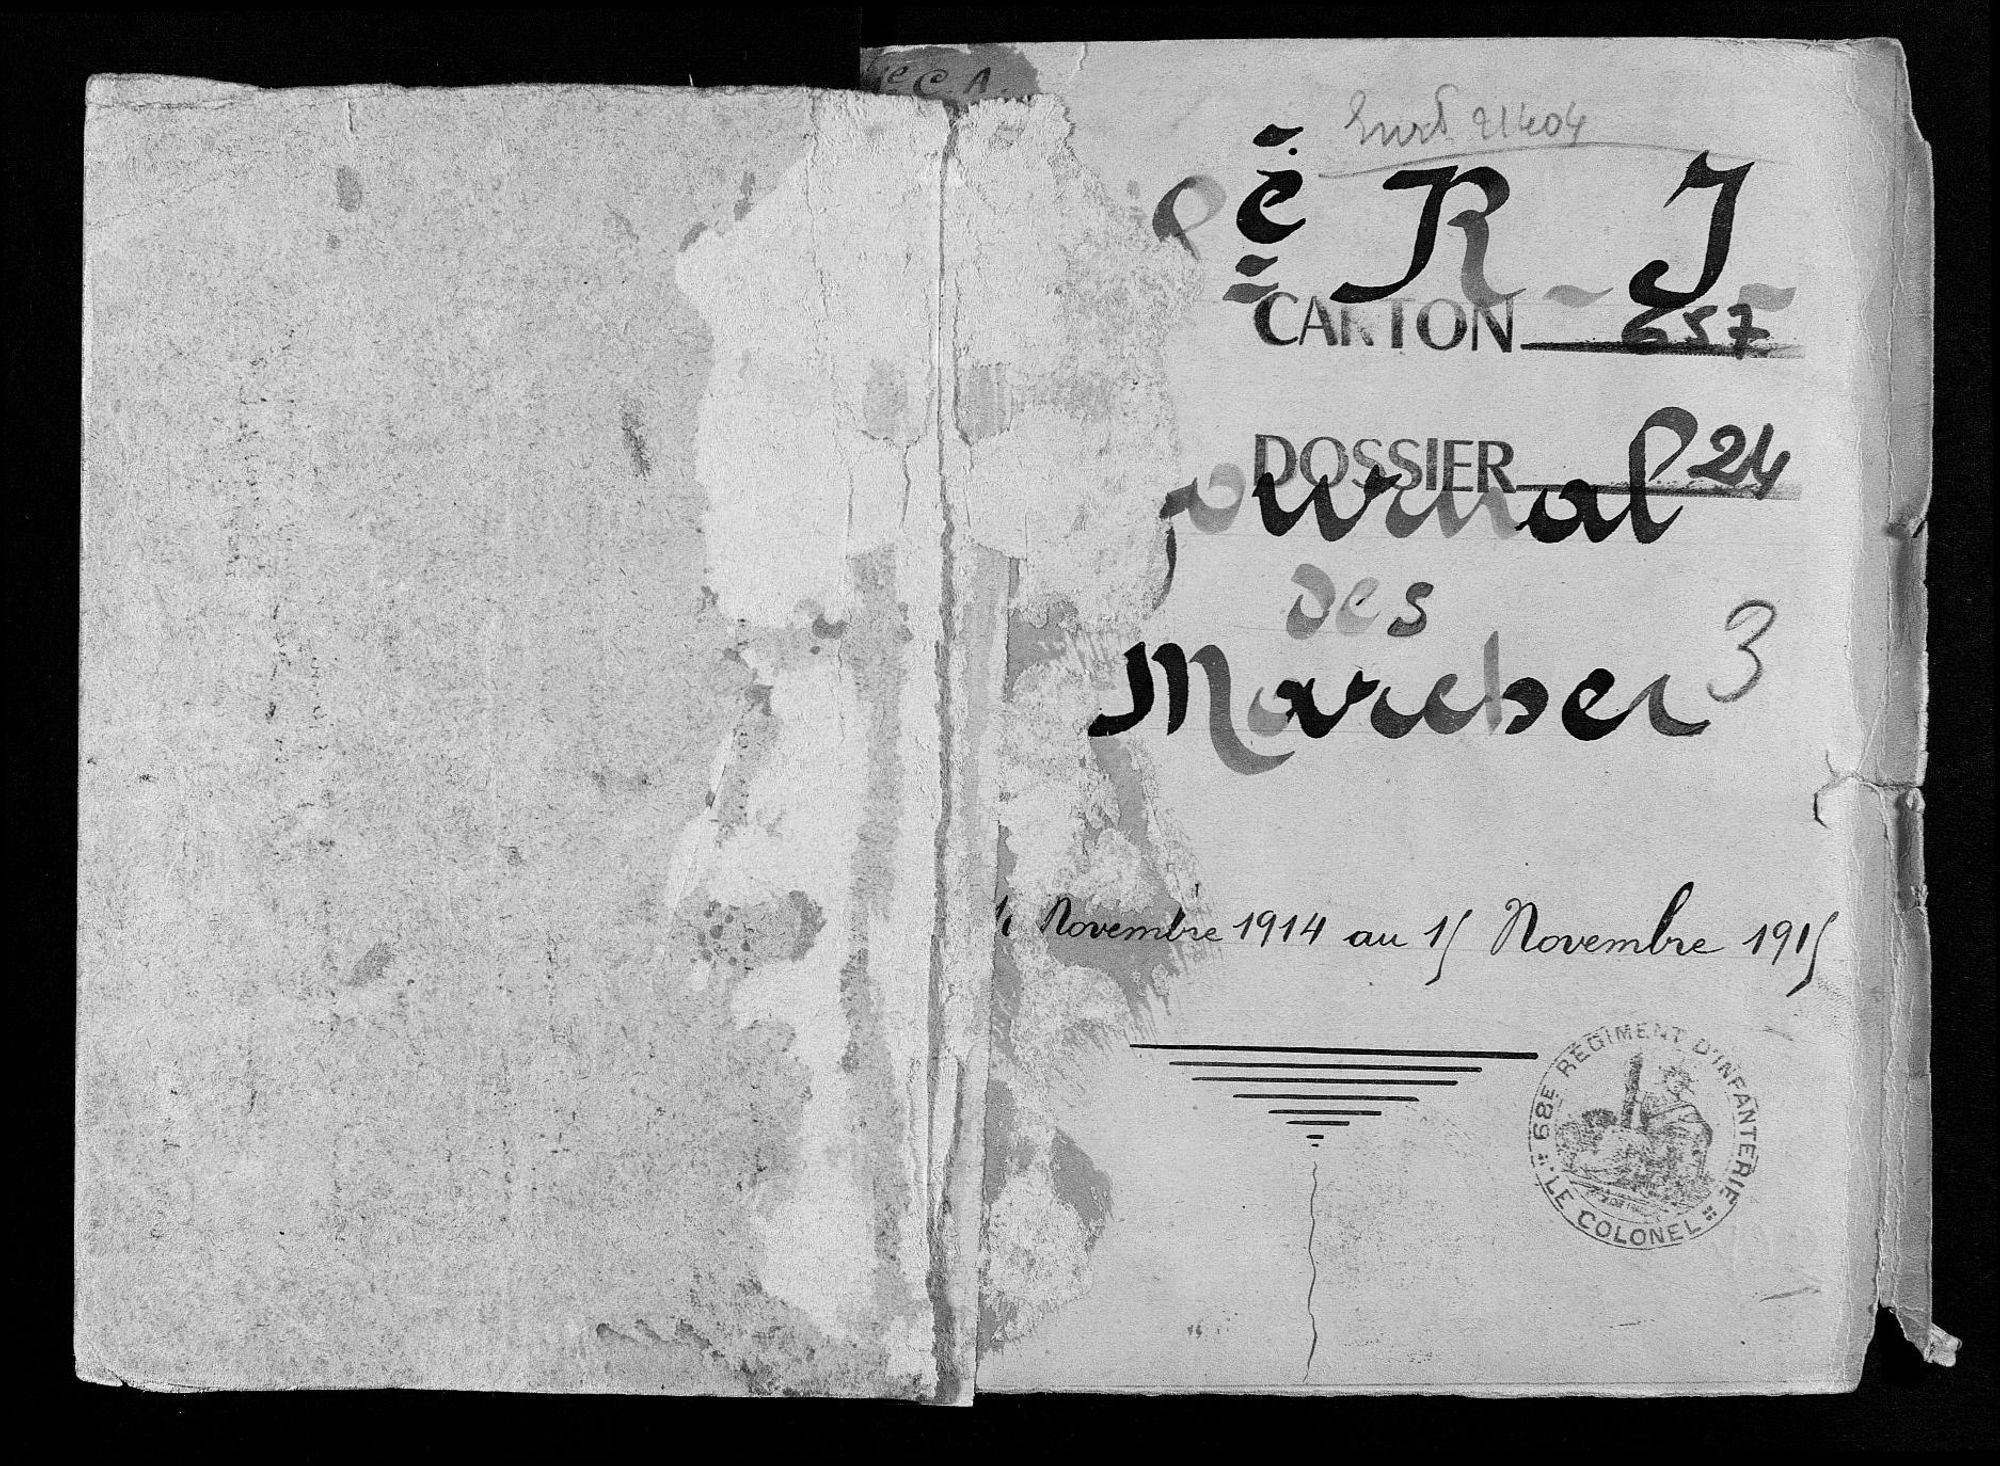 e C. A.
21404
8e R I
CARTON 657
DOSSIER 24
Journal
des
Marches 3
Novembre 1914 au 15 Novembre 1915
68E REGIMENT D'INFANTERIE
LE COLONEL